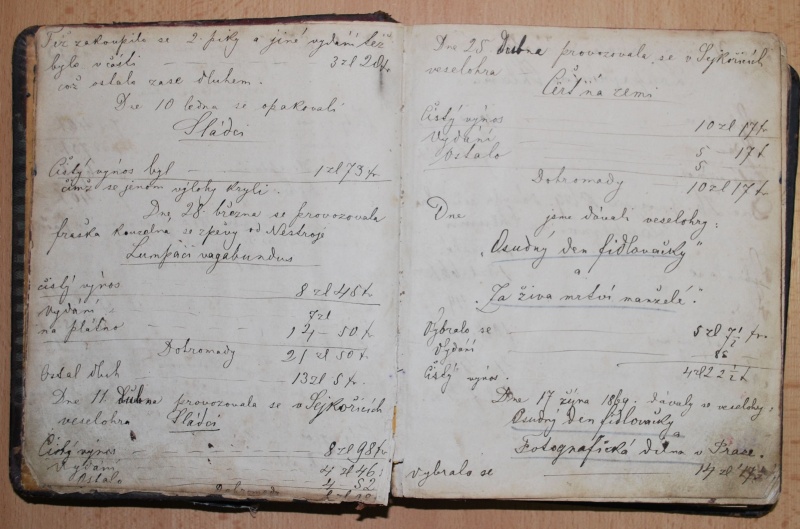 Též zakoupila se 2. piky a jiné vydání též
bylo včetě 3 zl 20 kr
což ostalo zase dluhem.
Dne 10 ledna se opakovali
Sládci
Čistý výnos byl 1 zl 73 kr
čímž se jenom výlohy kryli.
Dne 28. března se provozovala
fraška kouzelna se zpěvy od Nestroje
Lumpáci vagabundus
Čistý výnos 8 zl 45 kr
Vydání 7 zl
na plátno 14 – 50 kr
Dohromady 21 zl 50 kr
Ostal dluh 13 zl 5 kr.
Dne 11. dubna provozovala se v Sejkořicích
veselohra Sládci
Čistý výnos 8 zl 98 kr
Vydání 4 zl 46
Ostalo 4 52
Dohromady
Dne 25 dubna provozovala se v Sejkořicích
veselohra
Čert na zemi
Čistý výnos 10 zl 17 kr
Vydání 5 – 17 k
Ostalo 5
Dohromady 10 zl 17 kr
Dne jsme dávali veselohry:
„Osudný den fidlovačky"
a
„Za živa mrtví manželé."
Vybralo se 5 zl 7½ kr.
Vydání 85
Čistý výnos. 4 zl 22½ k
Dne 17 října 1869. dávaly se veselohry,
Osudný den fidlovačky
a
Fotografická dílna v Praze.
Vybralo se 14 zl